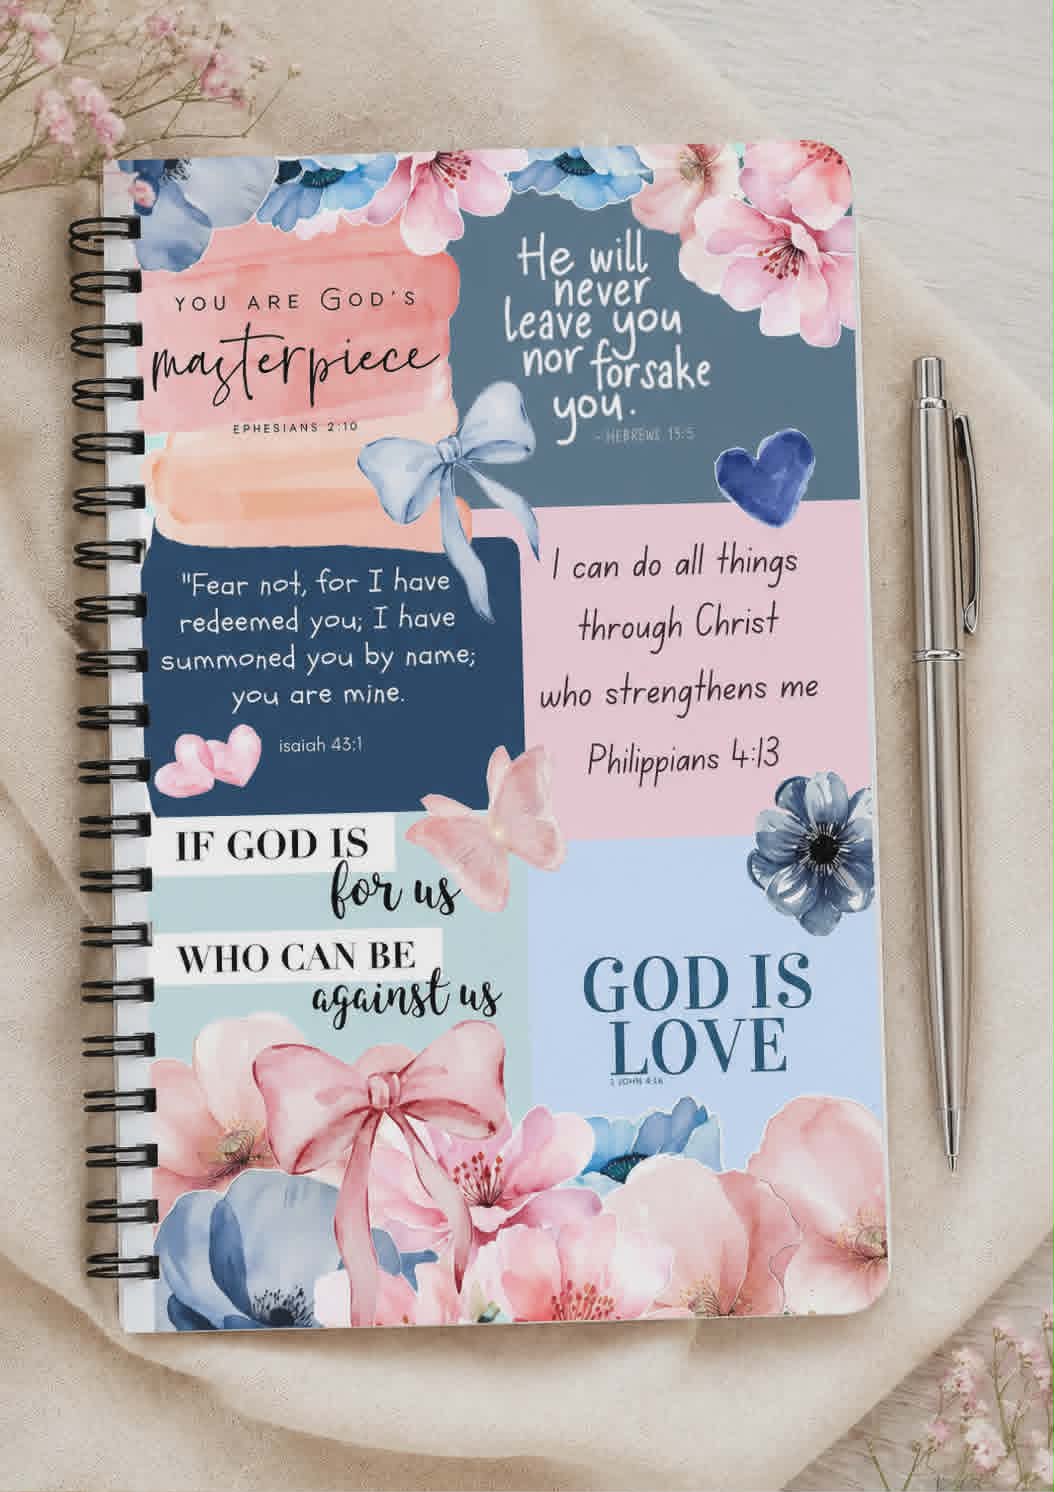 YOU ARE GOD'S
masterpiece
EPHESIANS 2:10
He will
never
leave you
nor forsake
you.
- HEBREWS 13:5
"Fear not, for I have
redeemed you; I have
summoned you by name;
you are mine.
isaiah 43:1
I can do all things
through Christ
who strengthens me
Philippians 4:13
IF GOD IS
for us
WHO CAN BE
against us
GOD IS
LOVE
1 JOHN 4:16